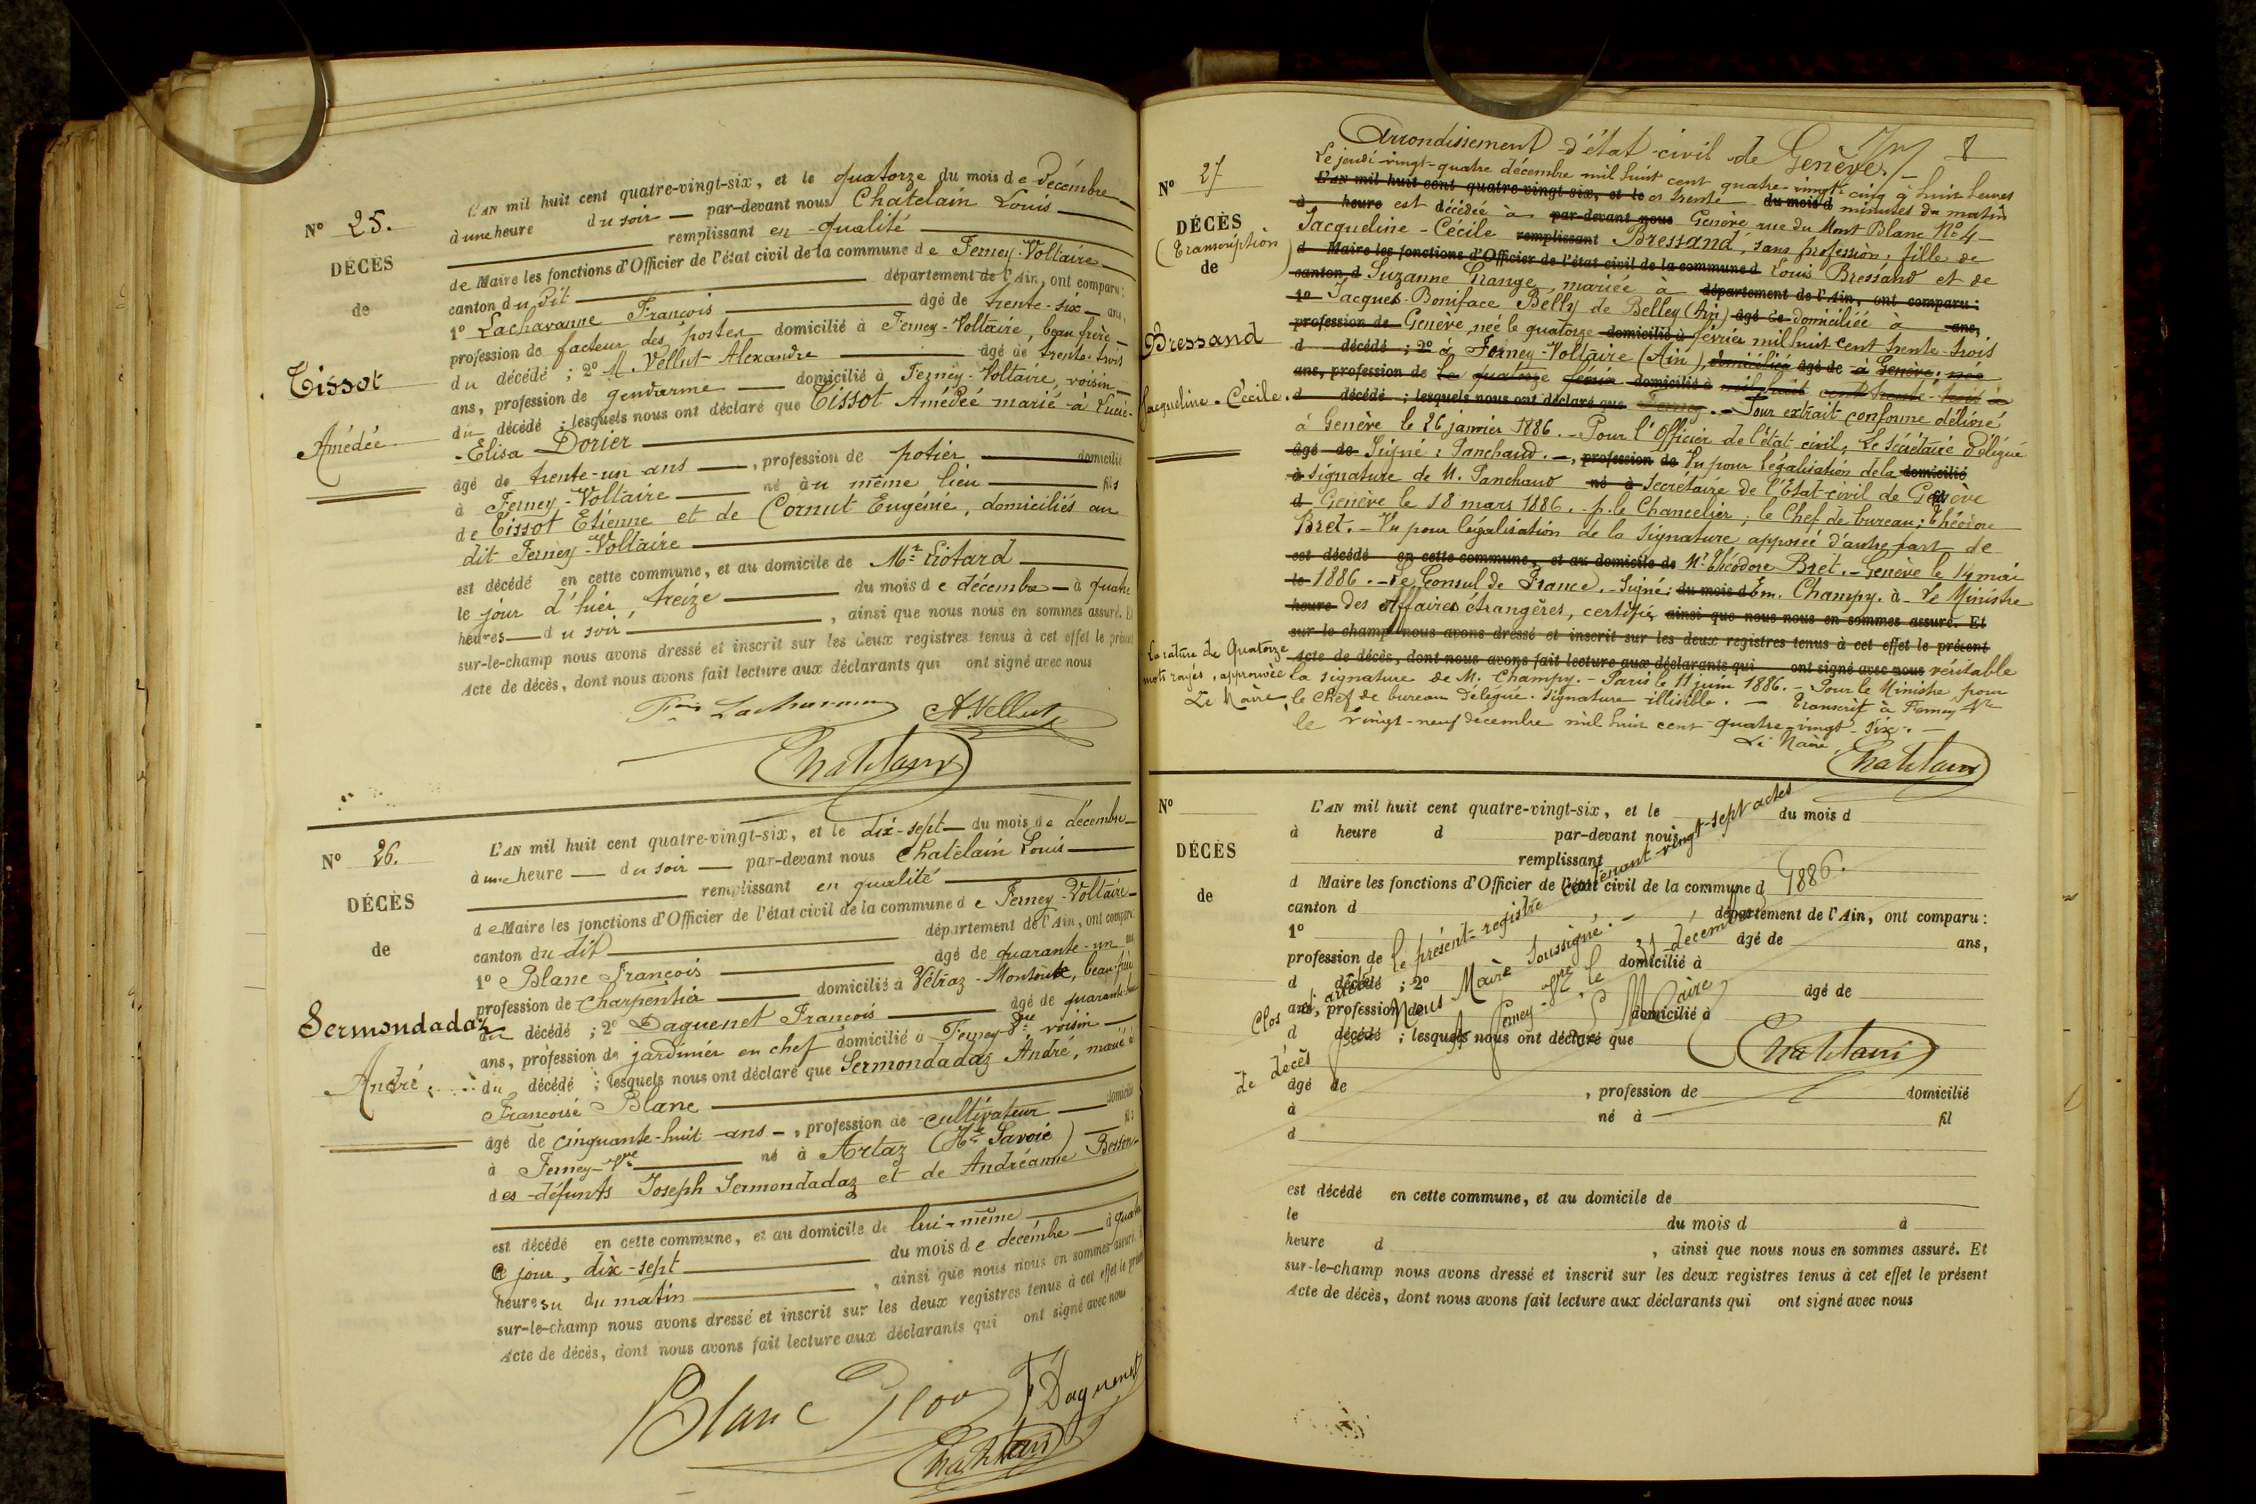 N° 25.
DÉCÈS
de
Tissot
Amédée
L'AN mil huit cent quatre-vingt-six, et le quatorze du mois de décembre
à une heure du soir par-devant nous Chatelain Louis
remplissant en qualité
de Maire les fonctions d'Officier de l'état civil de la commune de Ferney-Voltaire
canton du dit département de l'Ain, ont comparu:
1° Lachavanne François âgé de trente-six ans,
profession de facteur des postes domicilié à Ferney-Voltaire, beau frère
du décédé ; 2° M. Vellut Alexandre âgé de trente-trois
ans, profession de gendarme domicilié à Ferney-Voltaire, voisin
du décédé ; lesquels nous ont déclaré que Tissot Amédée marié à Lucie-
-Elisa Dorier
âgé de trente-un ans, profession de potier domicilié
à Ferney-Voltaire né au même lieu fils
de Tissot Etienne et de Cornut Eugénie, domiciliés au
dit Ferney-Voltaire
est décédé en cette commune, et au domicile de Mr
le jour d'hier, treize du mois de décembre à quatre
heures du soir, ainsi que nous nous en sommes assuré. Et
sur-le-champ nous avons dressé et inscrit sur les deux registres tenus à cet effet le présent
Acte de décès, dont nous avons fait lecture aux déclarants qui ont signé avec nous
AVellut
Chatelain
N° 26.
DÉCÈS
de
Sermondadaz
André
L'AN mil huit cent quatre-vingt-six, et le dix-sept du mois de décembre
à une heure du soir par-devant nous Chatelain Louis
remplissant en qualité
de Maire les fonctions d'Officier de l'état civil de la commune de Ferney-Voltaire
canton du dit département de l'Ain, ont comparu:
1° Blanc François âgé de quarante-un ans
profession de Charpentier domicilié à Vétraz-Monthoux, beau-frère
du décédé ; 2° Daguenet François âgé de quarante
ans, profession de jardinier en chef domicilié à Ferney-Vre voisin
du décédé ; lesquels nous ont déclaré que Sermondadaz André, marié à
Françoise Blanc
âgé de cinquante-huit ans, profession de cultivateur domicilié
à Ferney-Vre né à Artaz (Hte Savoie) fils
des défunts Joseph Sermondadaz et de Andréanne
est décédé en cette commune, et au domicile de lui-même
ce jour, dix-sept du mois de décembre à quatre
heures du matin, ainsi que nous nous en sommes assuré. Et
sur-le-champ nous avons dressé et inscrit sur les deux registres tenus à cet effet le présent
Acte de décès, dont nous avons fait lecture aux déclarants qui ont signé avec nous
Blanc
F Daguenet
Chatelain
8
N° 27
DÉCÈS
(Transcription)
de
Bressand
Jacqueline-Cécile.
Arrondissement d'état civil de Genève
Le jeudi vingt-quatre décembre mil huit cent quatre-vingt-cinq à huit heures
L'AN mil huit cent quatre-vingt-six, et le et trente du mois d minutes du matin
d heure est décédée à par-devant nous Genève rue du Mont Blanc N° 4
Jacqueline-Cécile remplissant Bressand, sans profession, fille de
d Maire les fonctions d'Officier de l'état civil de la commune d Louis Bressand et de
canton d Suzanne Grange, mariée à département de l'Ain, ont comparu:
1° Jacques-Boniface Belly de Belley (Ain) âgé de domiciliée à ans,
profession de Genève, née le quatorze domicilié à février mil huit cent trente-trois
d décédé ; 2° à Ferney-Voltaire (Ain), domiciliée âgé de à Genève; née
ans, profession de le quatorze février domicilié à mil huit cent trente-trois à
d décédé ; lesquels nous ont déclaré que Ferney. Pour extrait conforme délivré
à Genève le 26 janvier 1886. Pour l'Officier de l'état civil; Le Secrétaire délégué
âgé de Signé: Panchaud. , profession de Vu pour légalisation de la domicilié
à signature de M. Panchaud né à secrétaire de l'Etat-civil de Genève
d Genève le 18 mars 1886. p. le Chancelier, le Chef de bureau: Théodore
Bret. Vu pour légalisation de la signature apposée d'autre part de
est décédé en cette commune, et au domicile de Mr Théodore Bret. Genève le 14 mai
le 1886. Le Consul de France. Signé: du mois d Em. Champy. à Le Ministre
heure des Affaires étrangères, certifie ainsi que nous nous en sommes assuré. Et
sur-le-champ nous avons dressé et inscrit sur les deux registres tenus à cet effet le présent
Acte de décès, dont nous avons fait lecture aux déclarants qui ont signé avec nous véritable
la signature de M. Champy. Paris le 11 juin 1886. Pour le Ministre, pour
le Chef de bureau délégué. Signature illisible. Transcrit à Ferney-Vre
le vingt-neuf décembre mil huit cent quatre-vingt-six.
Le Maire,
Chatelain
La rature de Quatorze
mots rayés, approuvée
Le Maire,
N°
DÉCÈS
de
L'AN mil huit cent quatre-vingt-six, et le du mois d
à heure d par-devant nous
remplissant
d Maire les fonctions d'Officier de l'état civil de la commune d
canton d département de l'Ain, ont comparu:
1° âgé de ans,
profession de domicilié à
d décédé ; 2° âgé de
ans, profession de domicilié à
d décédé ; lesquels nous ont déclaré que
âgé de , profession de domicilié
à né à fil
d
est décédé en cette commune, et au domicile de
le du mois d à
heure d , ainsi que nous nous en sommes assuré. Et
sur-le-champ nous avons dressé et inscrit sur les deux registres tenus à cet effet le présent
Acte de décès, dont nous avons fait lecture aux déclarants qui ont signé avec nous
Clos et arrêté le présent registre contenant vingt-sept actes
de décès Nous Maire soussigné.
A Ferney-Vre, le 31 décembre 1886.
Le Maire
Chatelain